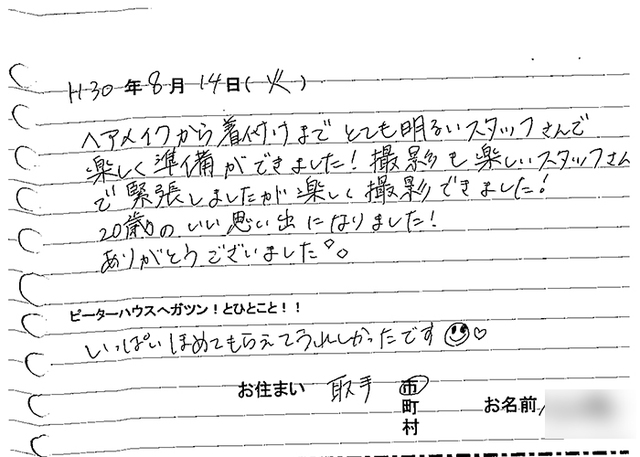 H30年8月14日(火)
ヘアメイクから着付けまでとても明るいスタッフさんで
楽しく準備ができました！撮影も楽しいスタッフさん
で緊張しましたが楽しく撮影できました！
20歳のいい思い出になりました！
ありがとうございました。
ピーターハウスへガツン！とひとこと！！
いっぱいほめてもらえてうれしかったです
お住まい 取手 市 お名前
町
村